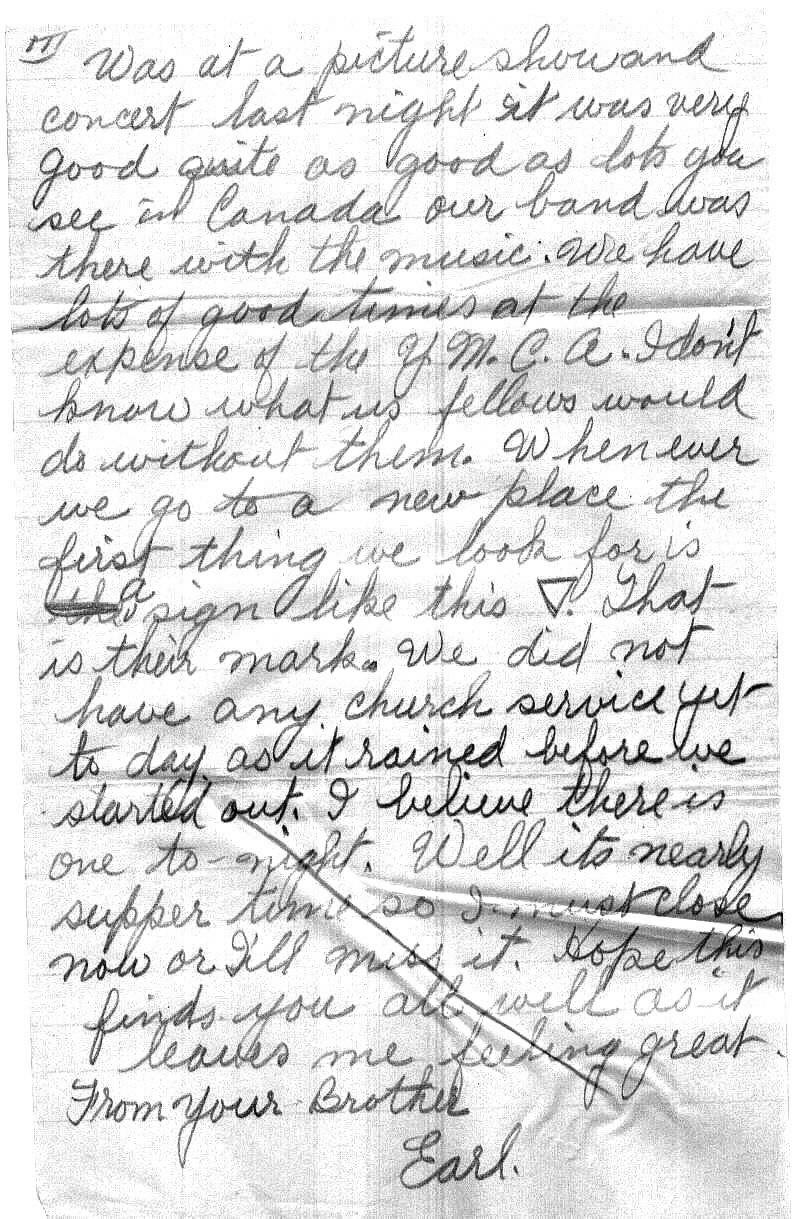 III
Was at a picture show and
concert last night it was very
good quite as good as lots you
see in Canada our band was
there with the music. We have
lots of good times at the
expense of the Y.M.C.A. I don't
know what us fellows would
do without them. Whenever
we go to a new place the
first thing we look for is
the a sign like this ▽. That
is their mark. We did not
have any church service yet
to day as it rained before we
started out. I believe there is
one to-night. Well its nearly
supper time so I must close
now or I'll miss it. Hope this
finds you all well as it
leaves me feeling great.
From Your Brother
Earl.